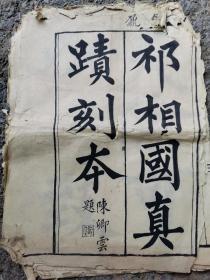 祁相國真
蹟刻本
陳卿雲
題